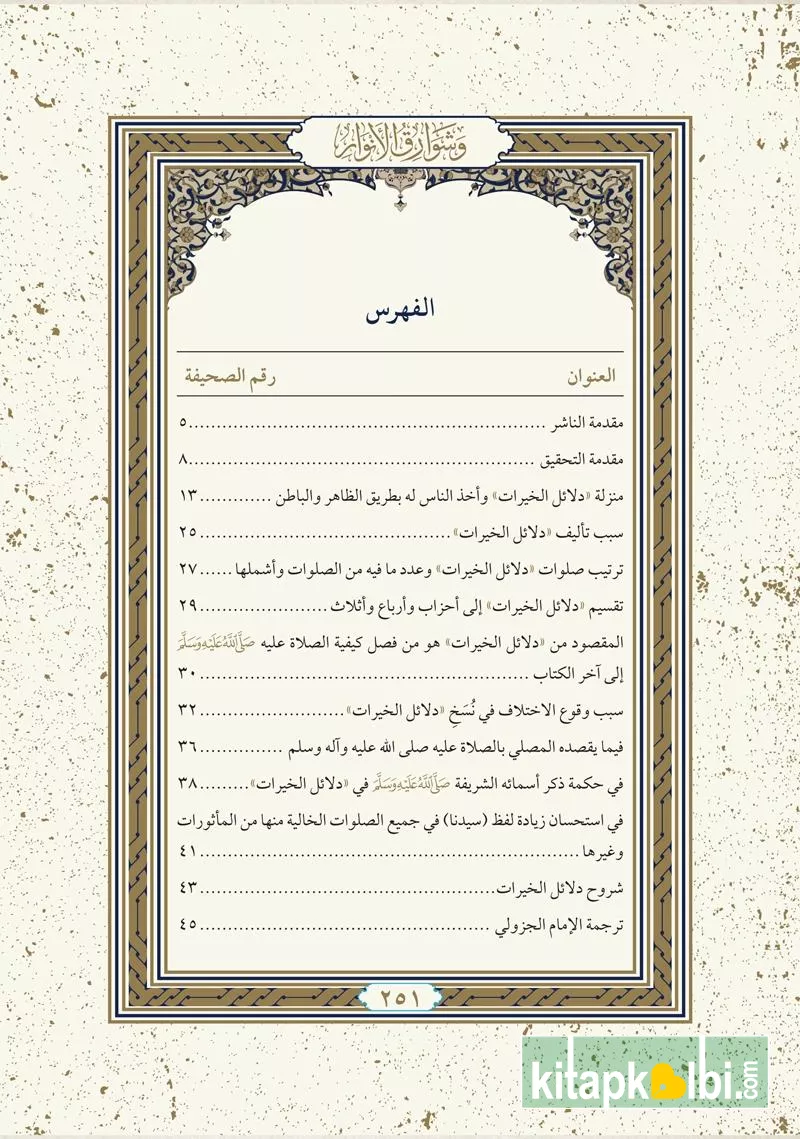 وشوارق الأنوار
الفهرس
العنوان رقم الصحيفة
مقدمة الناشر ..............................................................٥
مقدمة التحقيق ............................................................٨
منزلة «دلائل الخيرات» وأخذ الناس له بطريق الظاهر والباطن .............١٣
سبب تأليف «دلائل الخيرات»..............................................٢٥
ترتيب صلوات «دلائل الخيرات» وعدد ما فيه من الصلوات وأشملها ......٢٧
تقسيم «دلائل الخيرات» إلى أحزاب وأرباع وأثلاث .......................٢٩
المقصود من «دلائل الخيرات» هو من فصل كيفية الصلاة عليه ﷺ
إلى آخر الكتاب ...........................................................٣٠
سبب وقوع الاختلاف في نُسَخِ «دلائل الخيرات» ..........................٣٢
فيما يقصده المصلي بالصلاة عليه صلى الله عليه وآله وسلم ...............٣٦
في حكمة ذكر أسمائه الشريفة ﷺ في «دلائل الخيرات».........٣٨
في استحسان زيادة لفظ (سيدنا) في جميع الصلوات الخالية منها من المأثورات
وغيرها ....................................................................٤١
شروح دلائل الخيرات......................................................٤٣
ترجمة الإمام الجزولي .....................................................٤٥
٢٥١
kitapkalbi.com